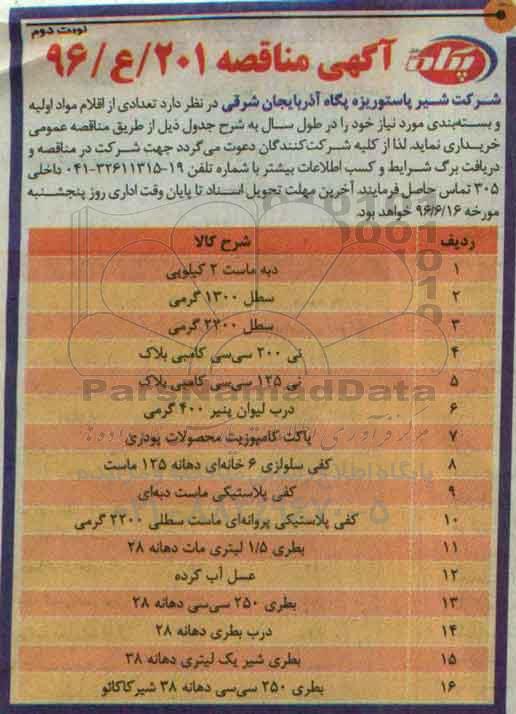 نوبت دوم
پگاه
آگهی مناقصه ۲۰۱/ع/۹۶
شرکت شیر پاستوریزه پگاه آذربایجان شرقی در نظر دارد تعدادی از اقلام مواد اولیه
و بسته‌بندی مورد نیاز خود را در طول سال به شرح جدول ذیل از طریق مناقصه عمومی
خریداری نماید. لذا از کلیه شرکت‌کنندگان دعوت می‌گردد جهت شرکت در مناقصه و
دریافت برگ شرایط و کسب اطلاعات بیشتر با شماره تلفن ۱۹-۳۲۶۱۱۳۱۵-۰۴۱ داخلی
۳۰۵ تماس حاصل فرمایند. آخرین مهلت تحویل اسناد تا پایان وقت اداری روز پنجشنبه
مورخه ۹۶/۶/۱۶ خواهد بود.
ردیف شرح کالا
۱ دبه ماست ۲ کیلویی
۲ سطل ۱۳۰۰ گرمی
۳ سطل ۲۲۰۰ گرمی
۴ نی ۲۰۰ سی‌سی کامبی بلاک
۵ نی ۱۲۵ سی‌سی کامبی بلاک
ParsNamadData
۶ درب لیوان پنیر ۴۰۰ گرمی
۷ پاکت کامپوزیت محصولات پودری
۸ کفی سلولزی ۶ خانه‌ای دهانه ۱۲۵ ماست
۹ کفی پلاستیکی ماست دبه‌ای
۱۰ کفی پلاستیکی پروانه‌ای ماست سطلی ۲۲۰۰ گرمی
۱۱ بطری ۱/۵ لیتری مات دهانه ۲۸
۱۲ عسل آب کرده
۱۳ بطری ۲۵۰ سی‌سی دهانه ۲۸
۱۴ درب بطری دهانه ۲۸
۱۵ بطری شیر یک لیتری دهانه ۳۸
۱۶ بطری ۲۵۰ سی‌سی دهانه ۳۸ شیرکاکائو